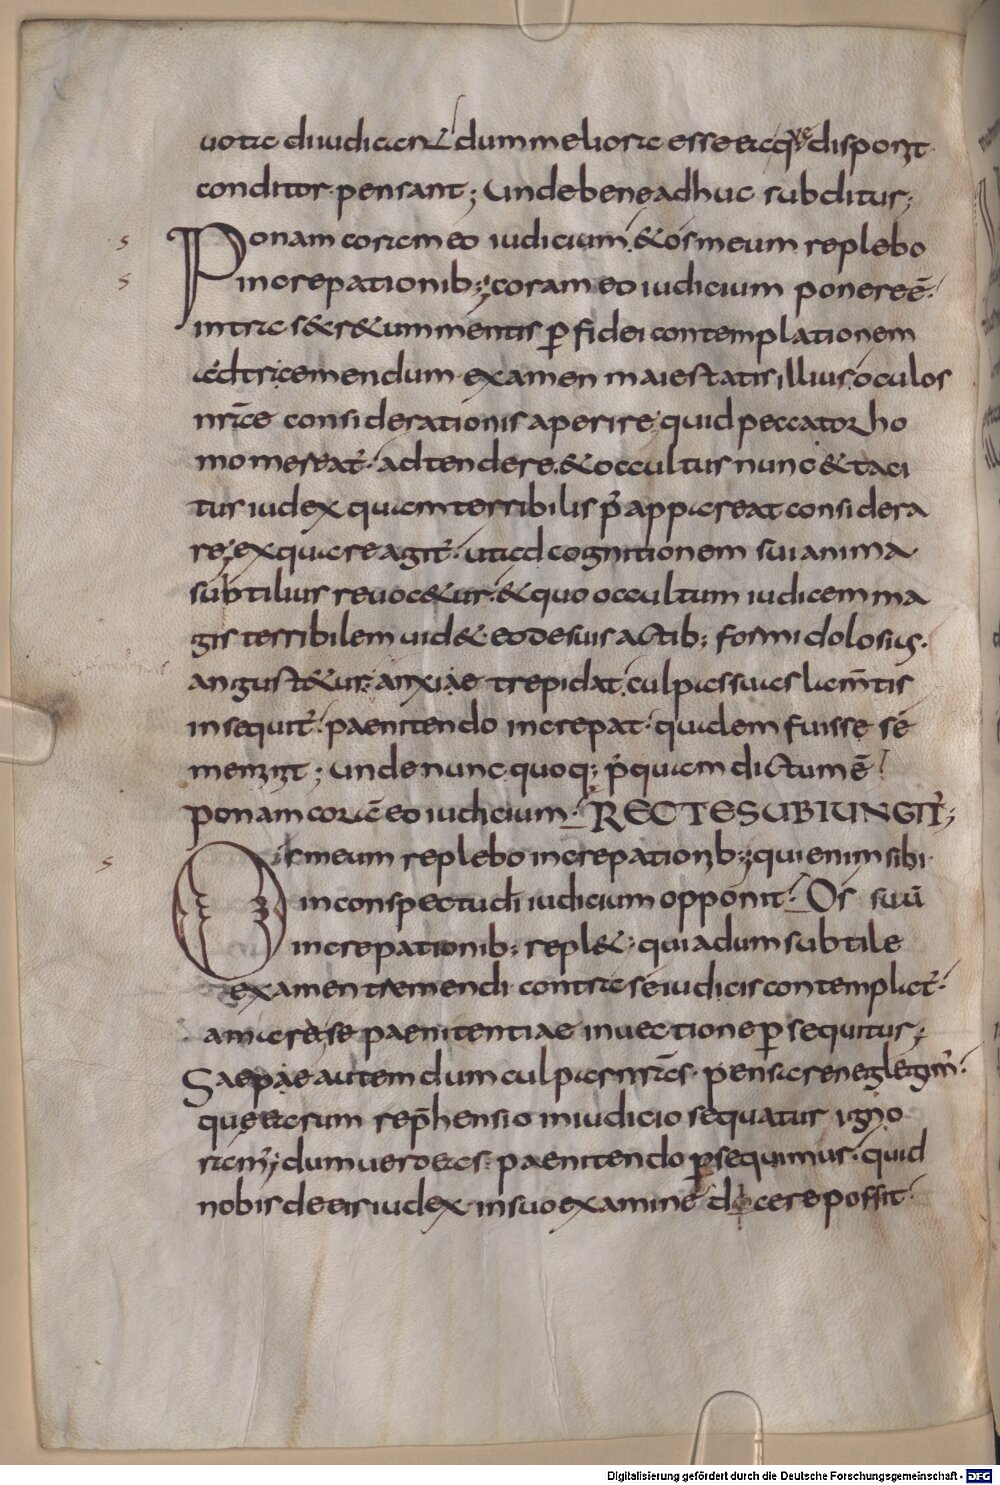 uota diiudicant dum meliora esse ea quae disponit
conditor pensant; unde bene adhuc subditur;
Ponam coram eo iudicium. & os meum replebo
increpationib; coram eo iudicium ponere ē.
intra s&r&um mentis p̄ fidei contemplationem
ad tremendum examen maiestatis illius. oculos
nr̄ae considerationis aperire. quid peccator ho
mo mereat̉. adtendere. & occultus nunc & taci
tus iudex quam terribilis p̄ appareat considera
re; ex qua re agit̉. ut ad cognitionem sui anima
subtilius reuoc&ur. & quo occultum iudicem ma
gis terribilem uid& eo de suis actib; formidolosius.
angust&ur. anxiae trepidat. culpas suas lam̄tis
insequit̉. paenitendo increpat. qualem fuisse se
meminit; unde nunc quoq; p̄quam dictum ē
ponam corā eo iudicium. RECTE SUBIUNGIT̉;
Os meum replebo increpationib; qui enim sibi
in conspectu dī iudicium opponit. Os suū
increpationib; repl&. quia dum subtile
examen tremendi contra se iudicis contemplat̉.
amara se paenitentiae inuectione p̄sequitur;
Saepae autem dum culpas nr̄as. pensare neglegim̉.
quae earum rep̄hensio in iudicio sequatur igno
ram̉; dum uero eas paenitendo p̄sequimur. quid
nobis de eis iudex in suo examine dicere possit.
Digitalisierung gefördert durch die Deutsche Forschungsgemeinschaft - DFG